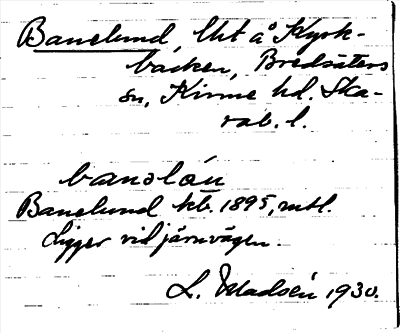 Banelund, lht å Kyrk-
backen, Bredsäters
sn, Kinne hd. Ska-
rab. l.
Banelund kb. 1895, mtl.
Ligger vid järnvägen.
L. Madsén 1930.